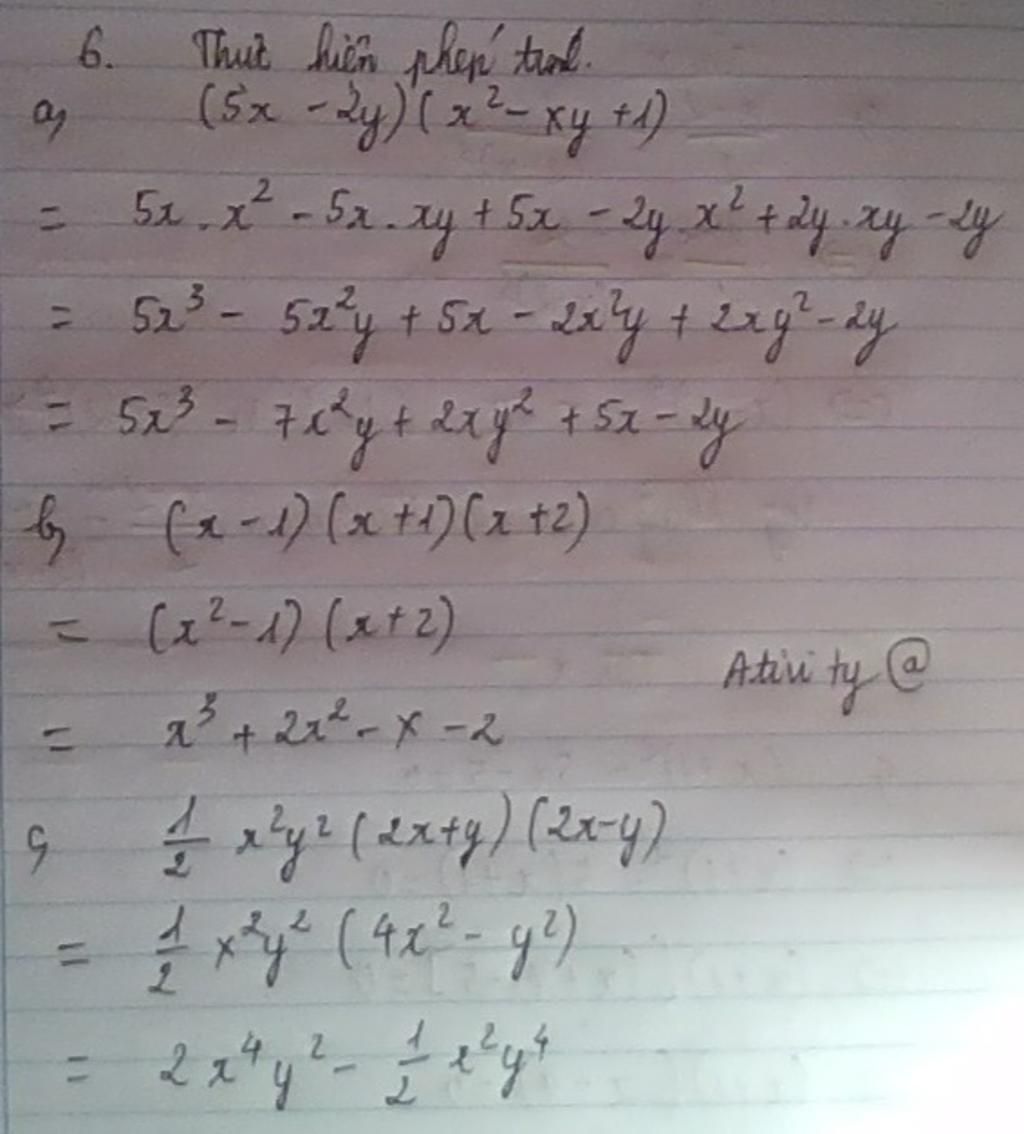 6. Thực hiện phép tính.
a, (5x - 2y)(x² - xy + 1)
= 5x . x² - 5x . xy + 5x - 2y . x² + 2y . xy - 2y
= 5x³ - 5x²y + 5x - 2x²y + 2xy² - 2y
= 5x³ - 7x²y + 2xy² + 5x - 2y
b, (x - 1)(x + 1)(x + 2)
= (x² - 1)(x + 2)
Ativity @
= x³ + 2x² - x - 2
c, 1/2 x²y² (2x + y)(2x - y)
= 1/2 x²y² (4x² - y²)
= 2x⁴y² - 1/2 x²y⁴